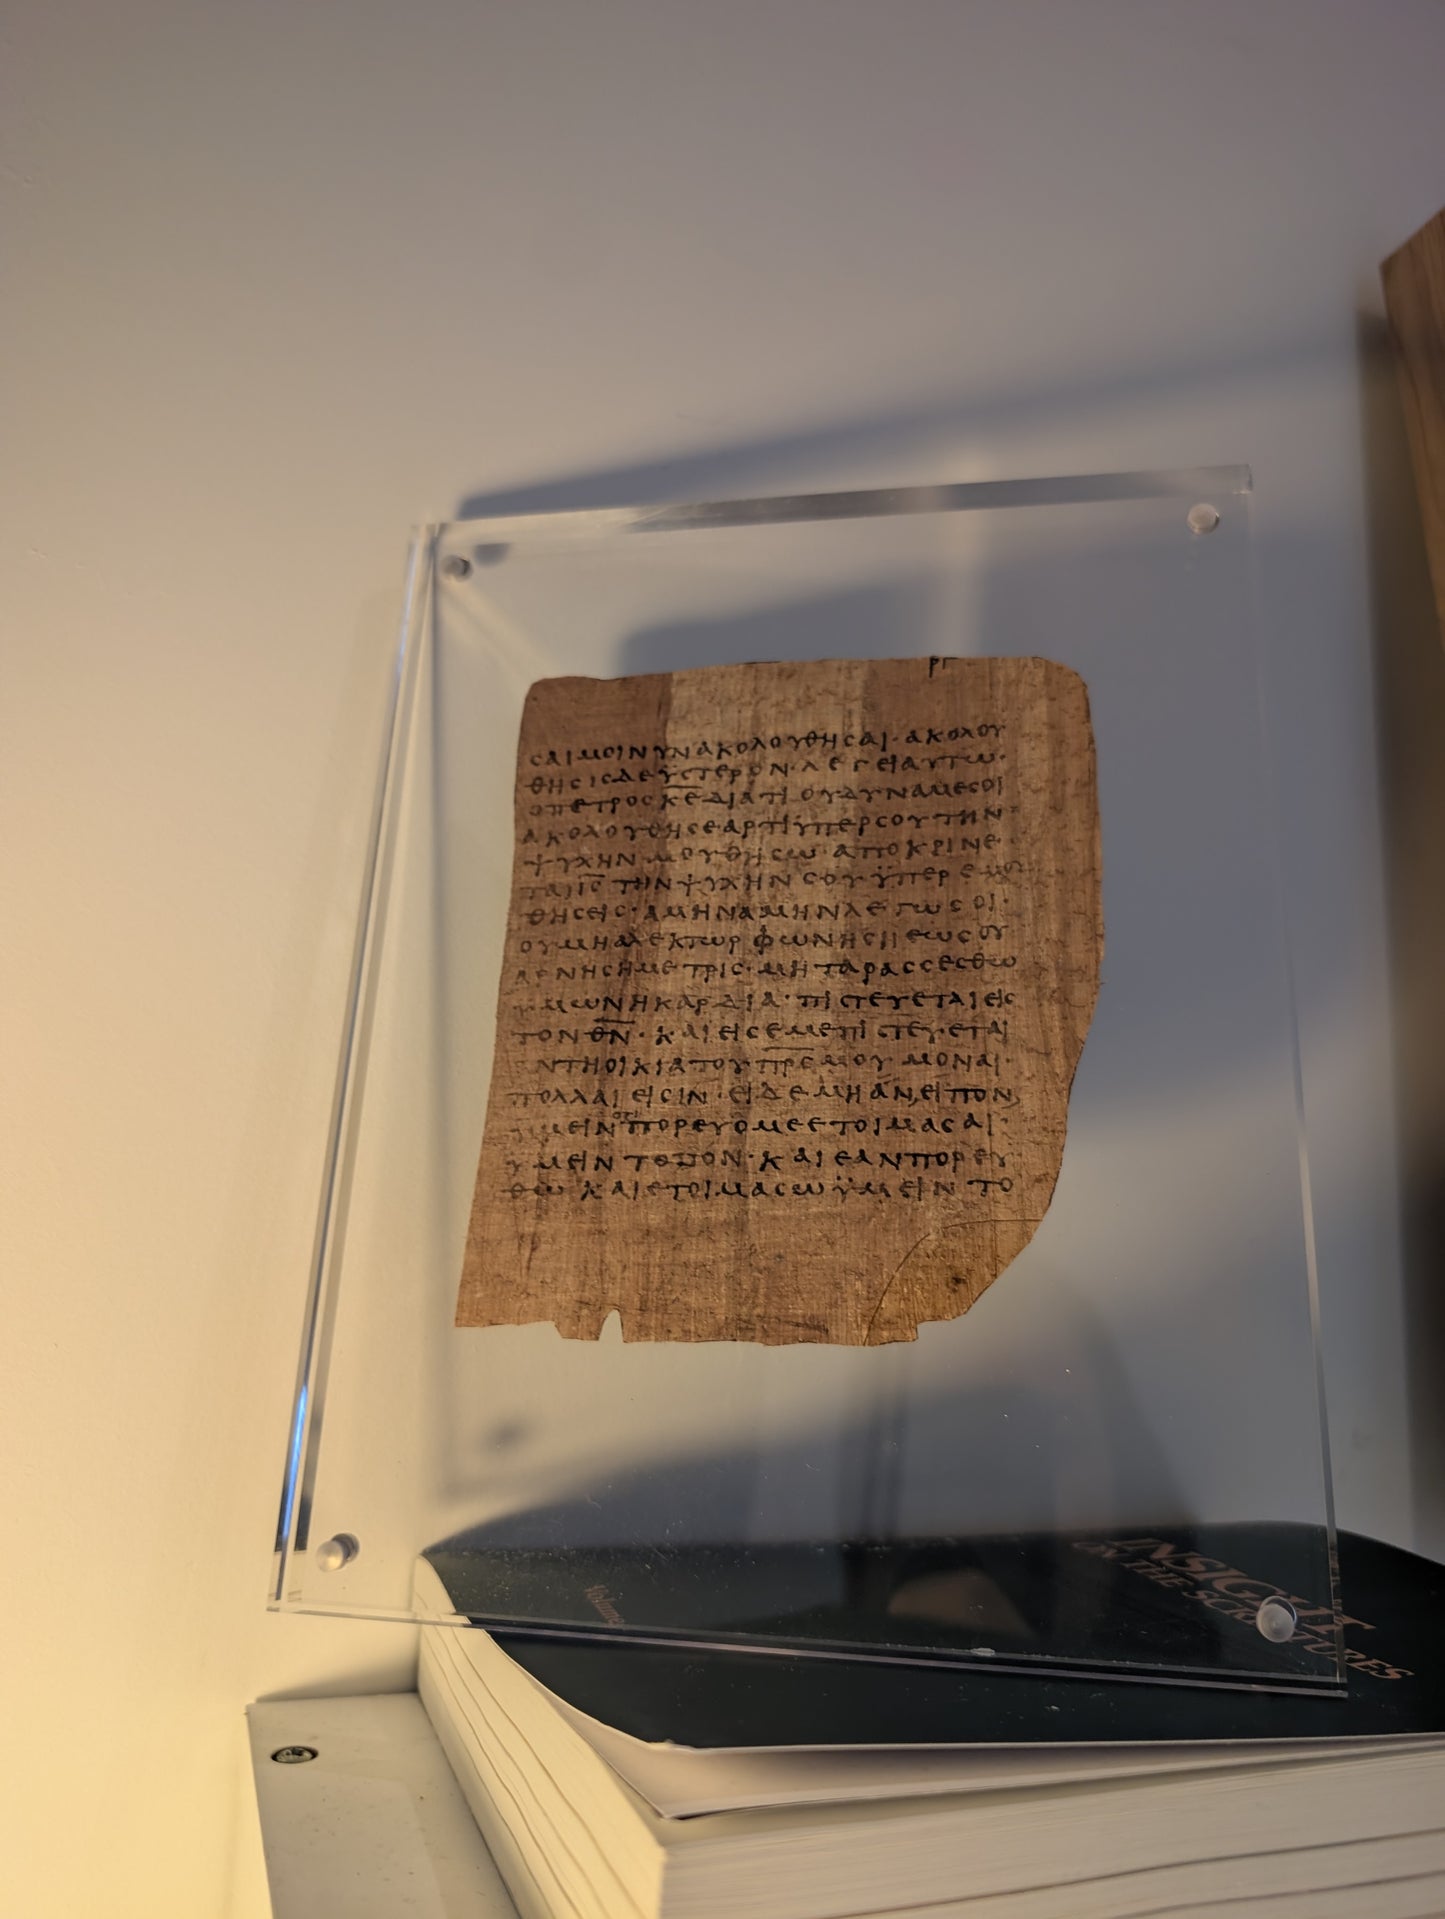 ργ
σαι μοι νυν ακολουθησαι· ακολου
θησις δε υστερον· λεγει αυτω·
ο πετρος κ̅ε̅ διατι ου δυναμε σοι
ακολουθησε αρτι ϋπερ σου την
ψυχην μου θησω· αποκρινε
ται ι̅ς̅ την ψυχην σου ϋπερ εμου
θησεις· αμην αμην λεγω σοι·
ου μη αλεκτωρ φωνησιι εως ου
αρνηση με τρις· μη ταρασσεσθω
ϋμων η καρδια· πιστευεται εις
τον θ̅ν̅· και εις εμε πιστευεται
εν τη οικια του π̅ρ̅ς̅ μου μοναι·
πολλαι εισιν· ει δε μη αν, ειπον,
ϋμειν οτι πορευομε ετοιμασαι·
υμειν τοπον· και εαν πορευ
θω και ετοιμασω ϋμειν το
INSIGHT
ON THE SCRIPTURES
Volume